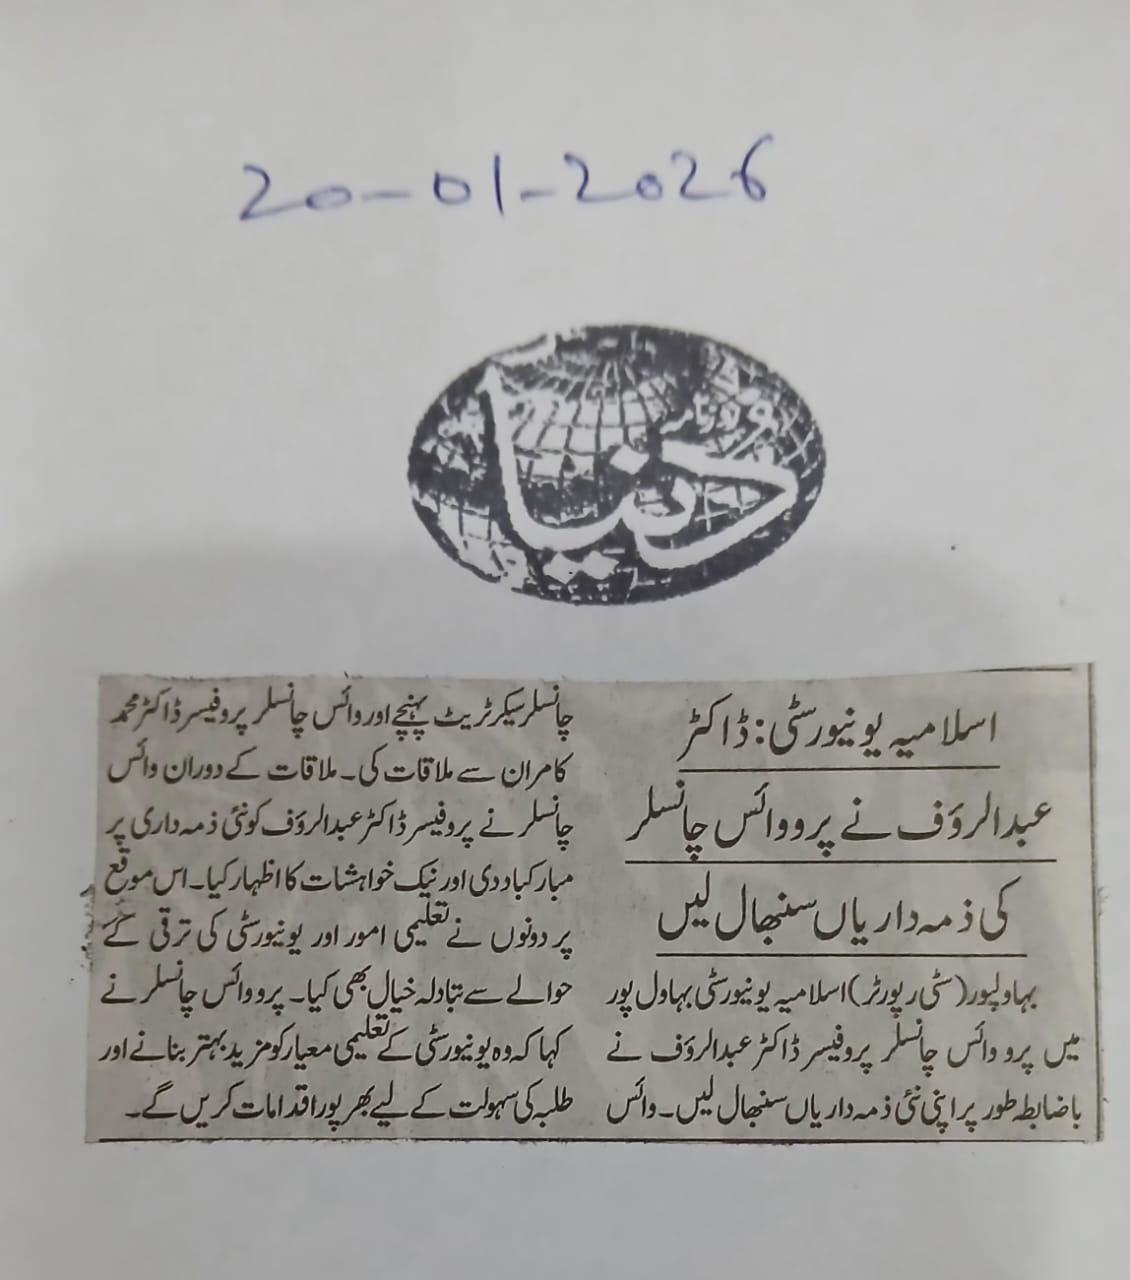 20-01-2026
روزنامہ
دنیا
اسلامیہ یونیورسٹی: ڈاکٹر
عبدالرؤف نے پرو وائس چانسلر
کی ذمہ داریاں سنبھال لیں
بہاولپور (سٹی رپورٹر) اسلامیہ یونیورسٹی بہاول پور
میں پرو وائس چانسلر پروفیسر ڈاکٹر عبدالرؤف نے
باضابطہ طور پر اپنی نئی ذمہ داریاں سنبھال لیں۔ وائس
چانسلر سیکرٹریٹ پہنچے اور وائس چانسلر پروفیسر ڈاکٹر محمد
کامران سے ملاقات کی۔ ملاقات کے دوران وائس
چانسلر نے پروفیسر ڈاکٹر عبدالرؤف کو نئی ذمہ داری پر
مبارکباد دی اور نیک خواہشات کا اظہار کیا۔ اس موقع
پر دونوں نے تعلیمی امور اور یونیورسٹی کی ترقی کے
حوالے سے تبادلہ خیال بھی کیا۔ پرو وائس چانسلر نے
کہا کہ وہ یونیورسٹی کے تعلیمی معیار کو مزید بہتر بنانے اور
طلبہ کی سہولت کے لیے بھرپور اقدامات کریں گے۔